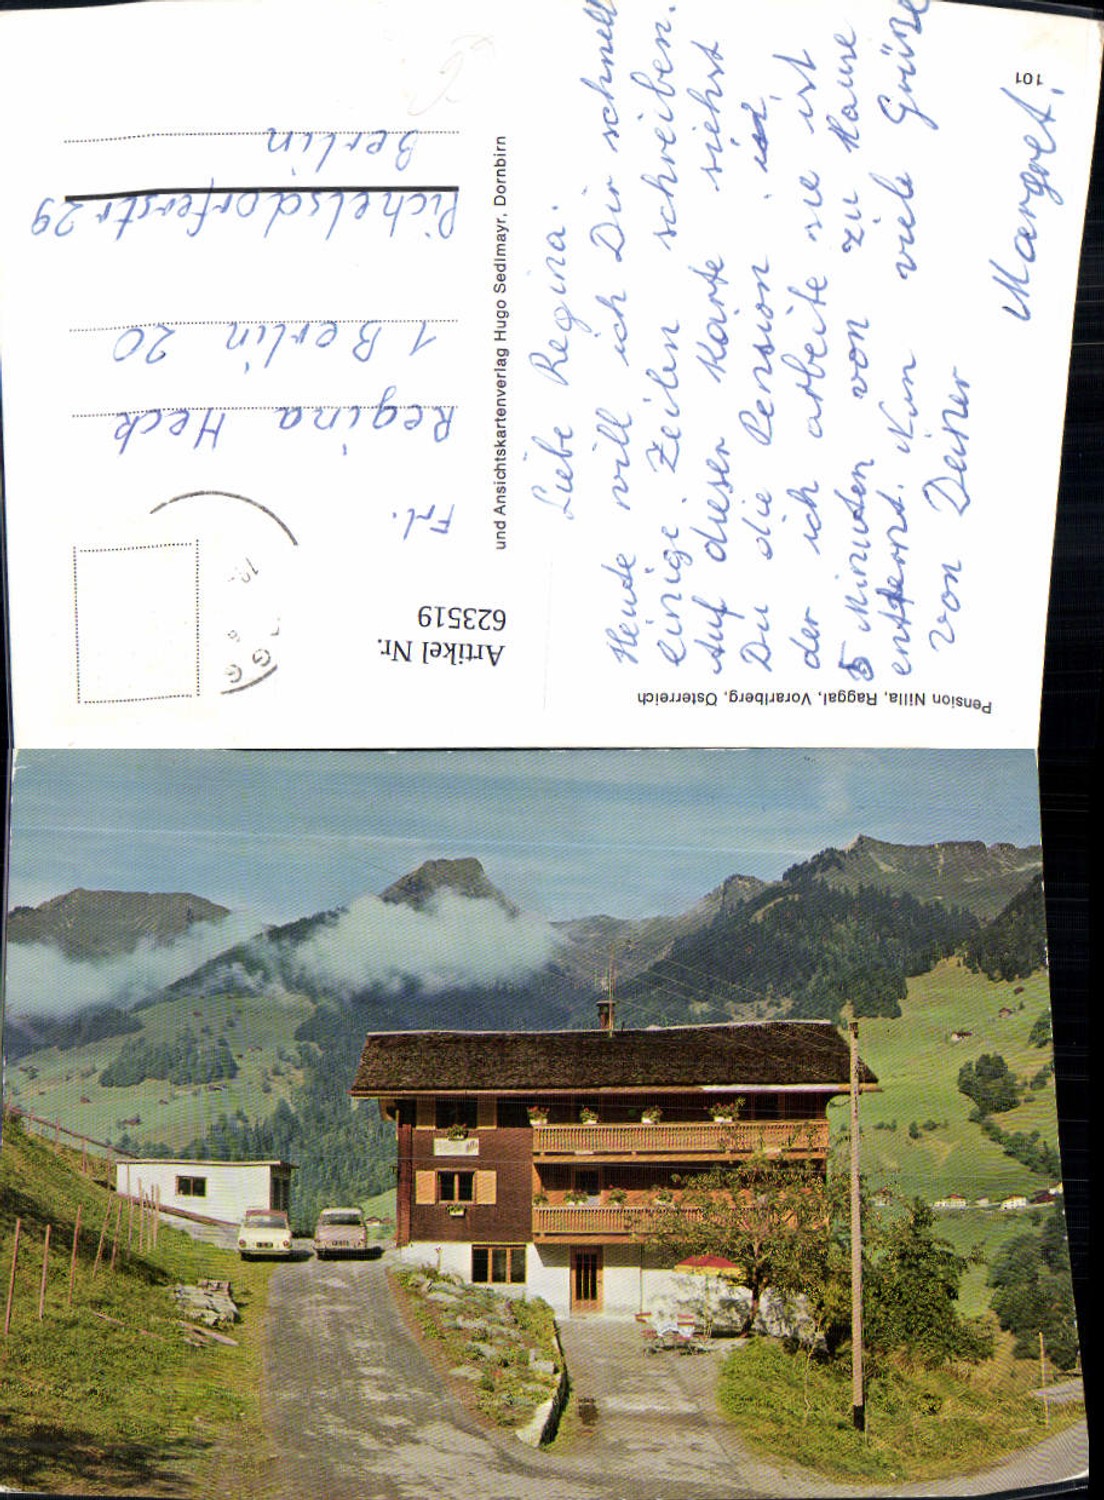 Pension Nilla, Raggal, Vorarlberg, Österreich
101
Artikel Nr.
623519
und Ansichtskartenverlag Hugo Sedlmayr, Dornbirn
Liebe Regina.
Heute will ich Dir schnell
einige Zeilen schreiben.
Auf dieser Karte siehst
Du die Pension in
der ich arbeite sie ist
5 Minuten von zu Hause
entfernt. Nun viele Grüße
von Deiner
Margret.
Frl.
Regina Heck
1 Berlin 20
Pichelsdorferstr 29
Berlin